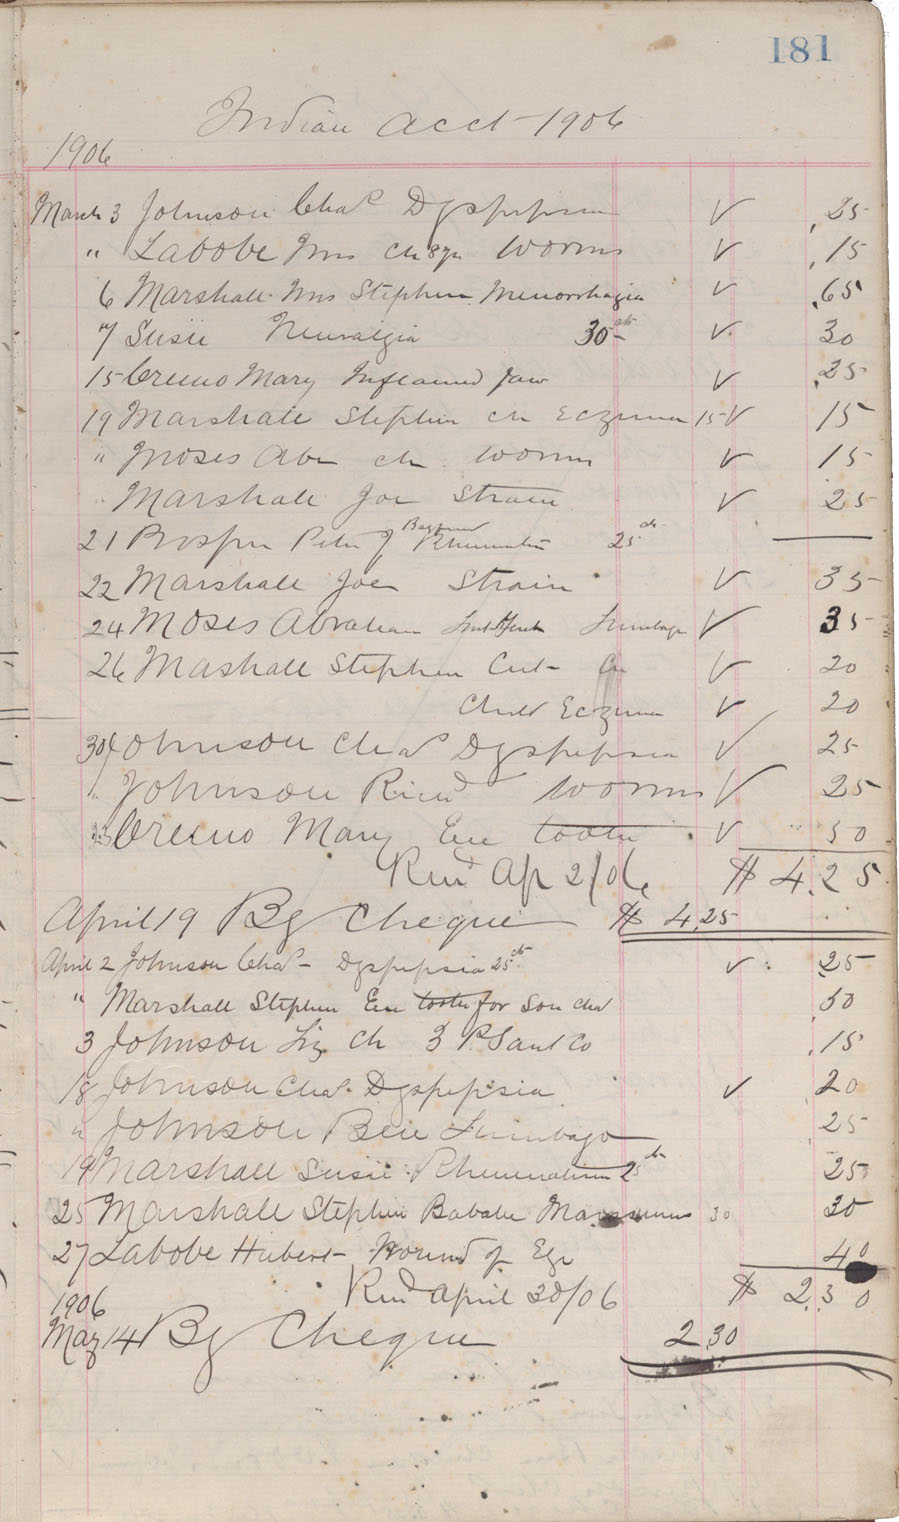 181
Indian Acct 1906
1906
March 3 Johnson Chas Dyspepsia √ .25
" Labobe Mrs ch 8 yr Worms √ .15
6 Marshall Mrs Stephen Menorrhagia √ .65
7 Susie Neuralgia 30 cts √ 30
15 Creeno Mary Inflamed Jaw √ .25
19 Marshall Stephen ch Eczema 15 √ 15
" Moses Abe ch worms √ 15
" Marshall Joe Strain √ 25
21 Peter J Rheumatism 25 cts
22 Marshall Joe Strain √ 35
24 Moses Abraham Lumbago √ 35
26 Mashall Stephen Cut √ 20
Child Eczema √ 20
30 Johnson Chas Dyspepsia √ 25
" Johnson Ricd worms √ 25
Creeno Mary Ext tooth √ 50
Rend Apr 2/06 $ 4.25
April 19 By Cheque $ 4.25
April 2 Johnson Chas - Dyspepsia 25 cts √ 25
" Marshall Stephen Ext tooth for Son Chas 50
3 Johnson Liz Ch 3 P Sant Co .15
18 Johnson Chas. Dyspepsia √ 20
" Johnson Ben Lumbago 25
19 Marshall Susie Rheumatism 25 cts 25
25 Marshall Stephen Bababe Marasmus 30 30
27 Labobe Hubert - Wound of Eye 40
Rend April 30/06 $ 2.30
1906
May 14 By Cheque 2.30